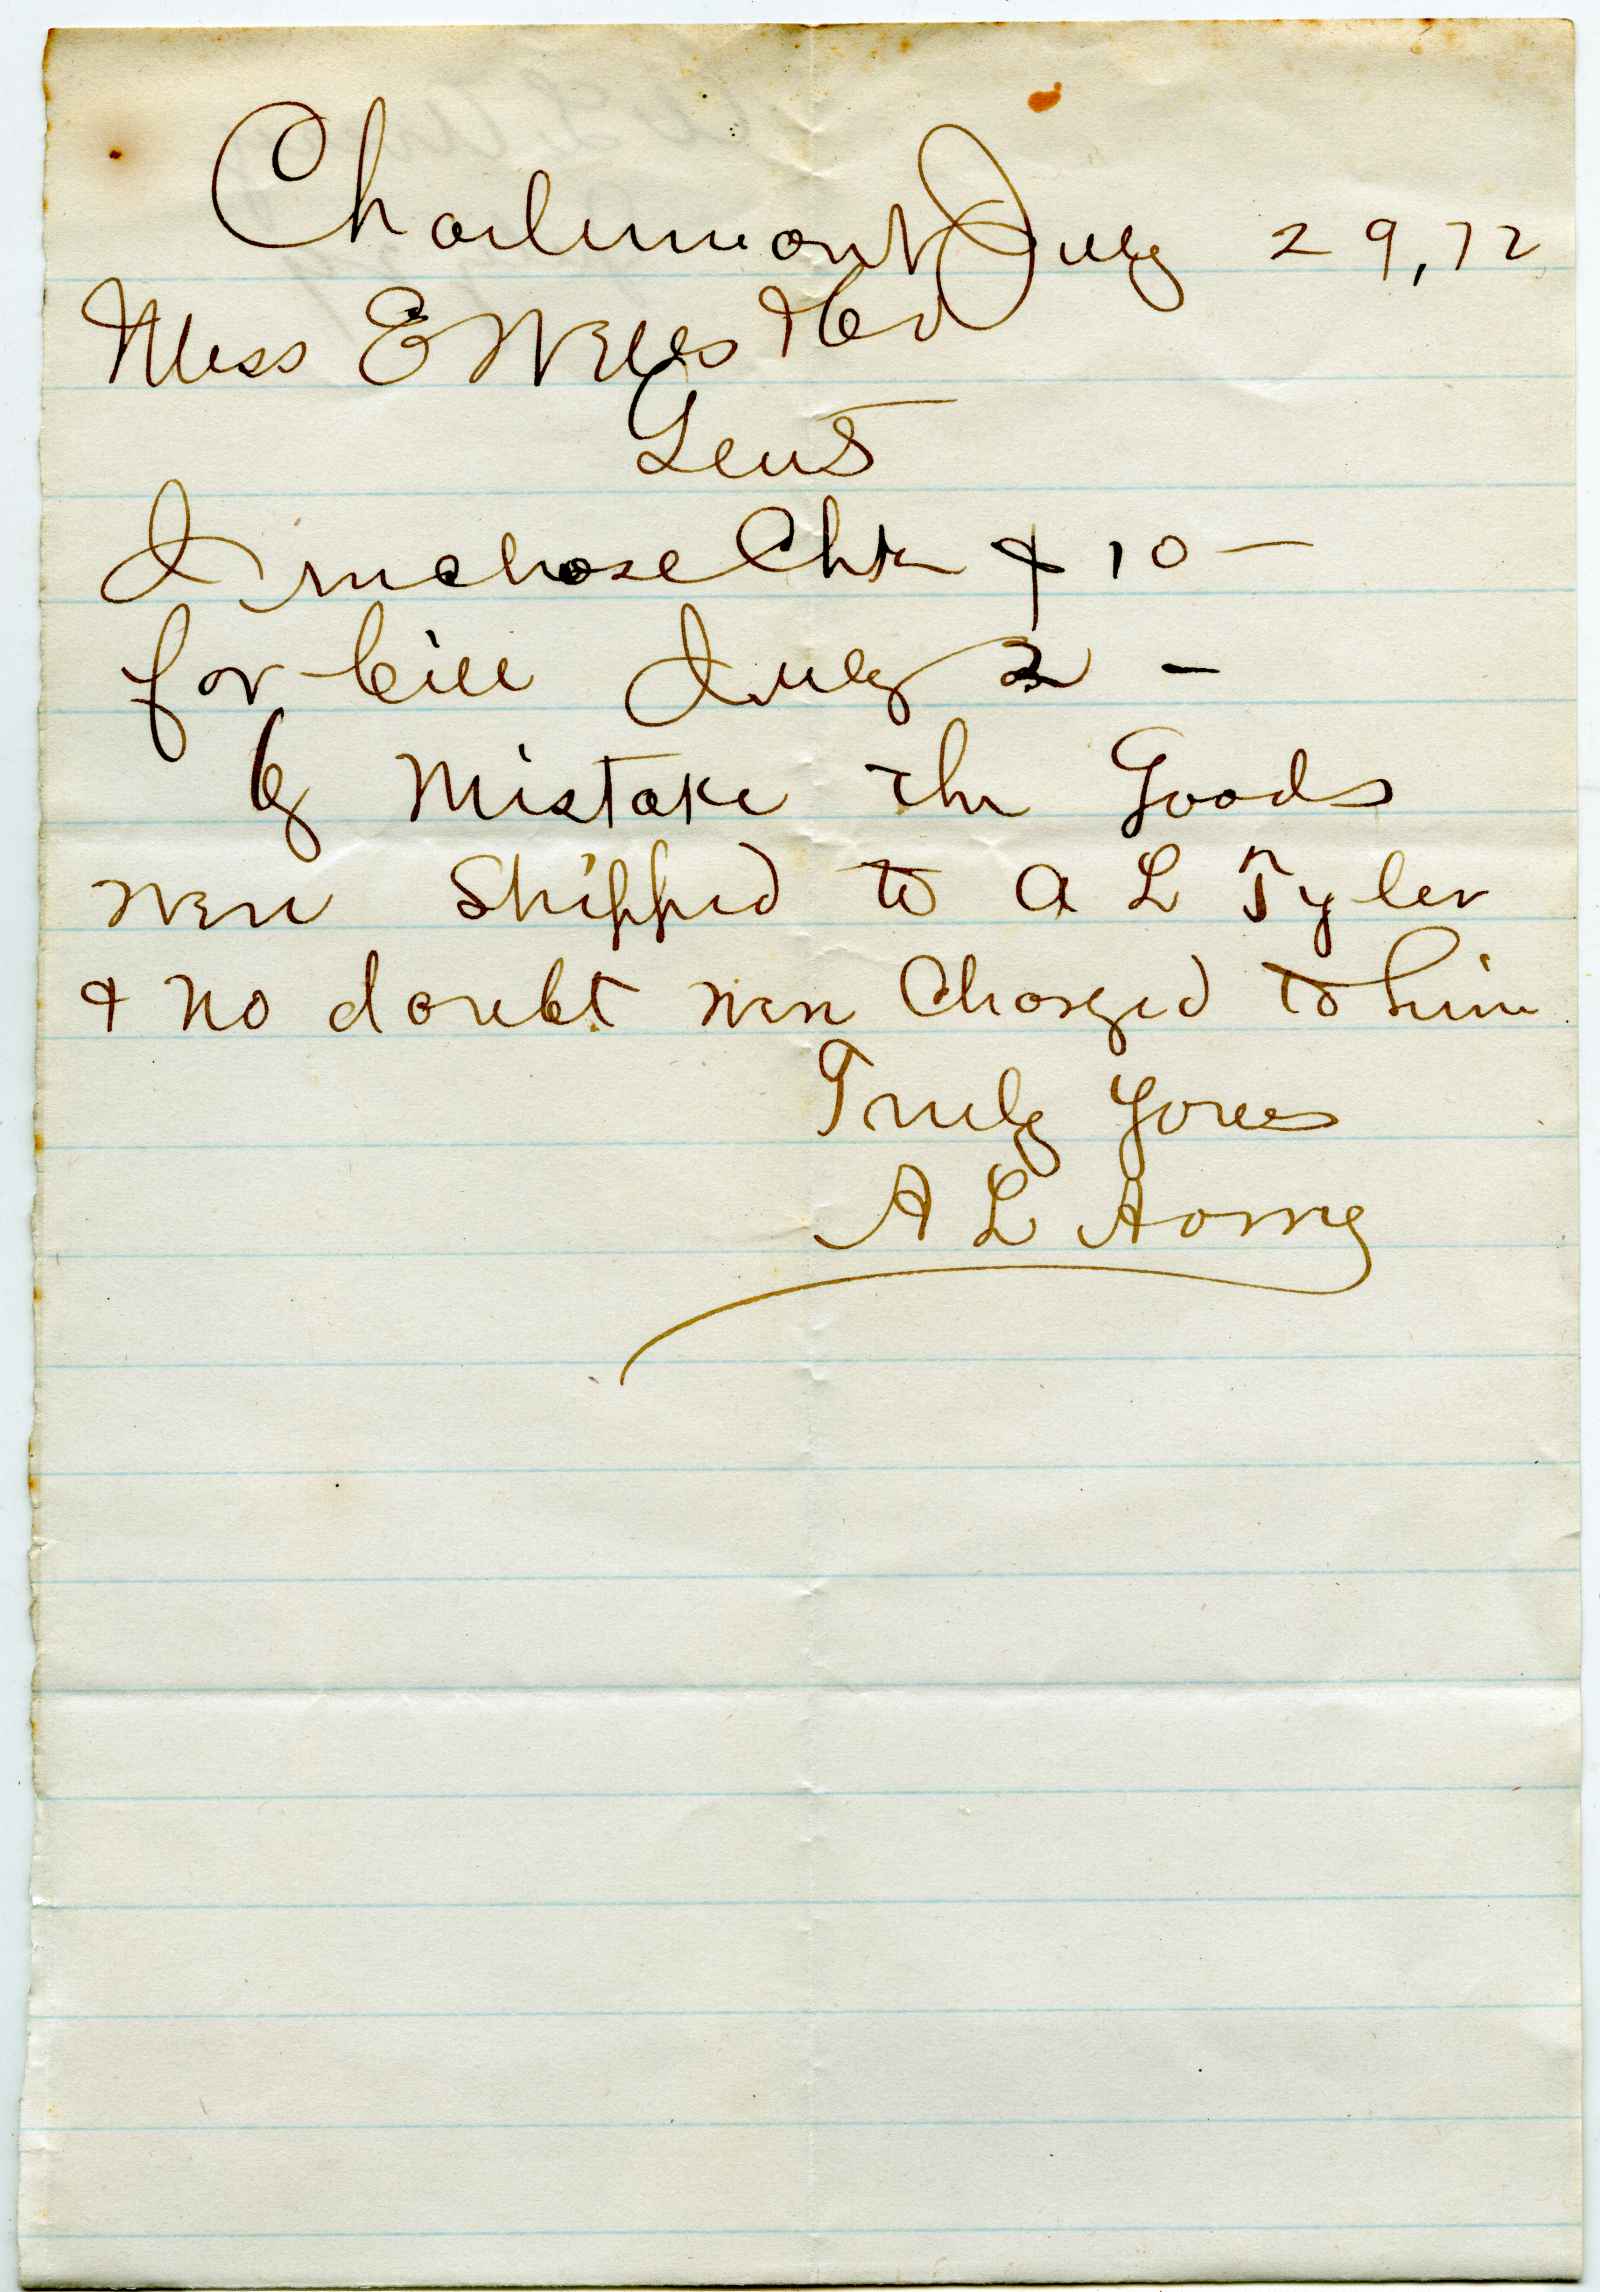 Charlemont July 29, 72
Mess E Wells
Gents
I inclose Chk $10 —
for bill July 2 —
by Mistake the Goods
were Shipped to A L Tyler
& no doubt were Charged to him
Truly Yours
A L Avery